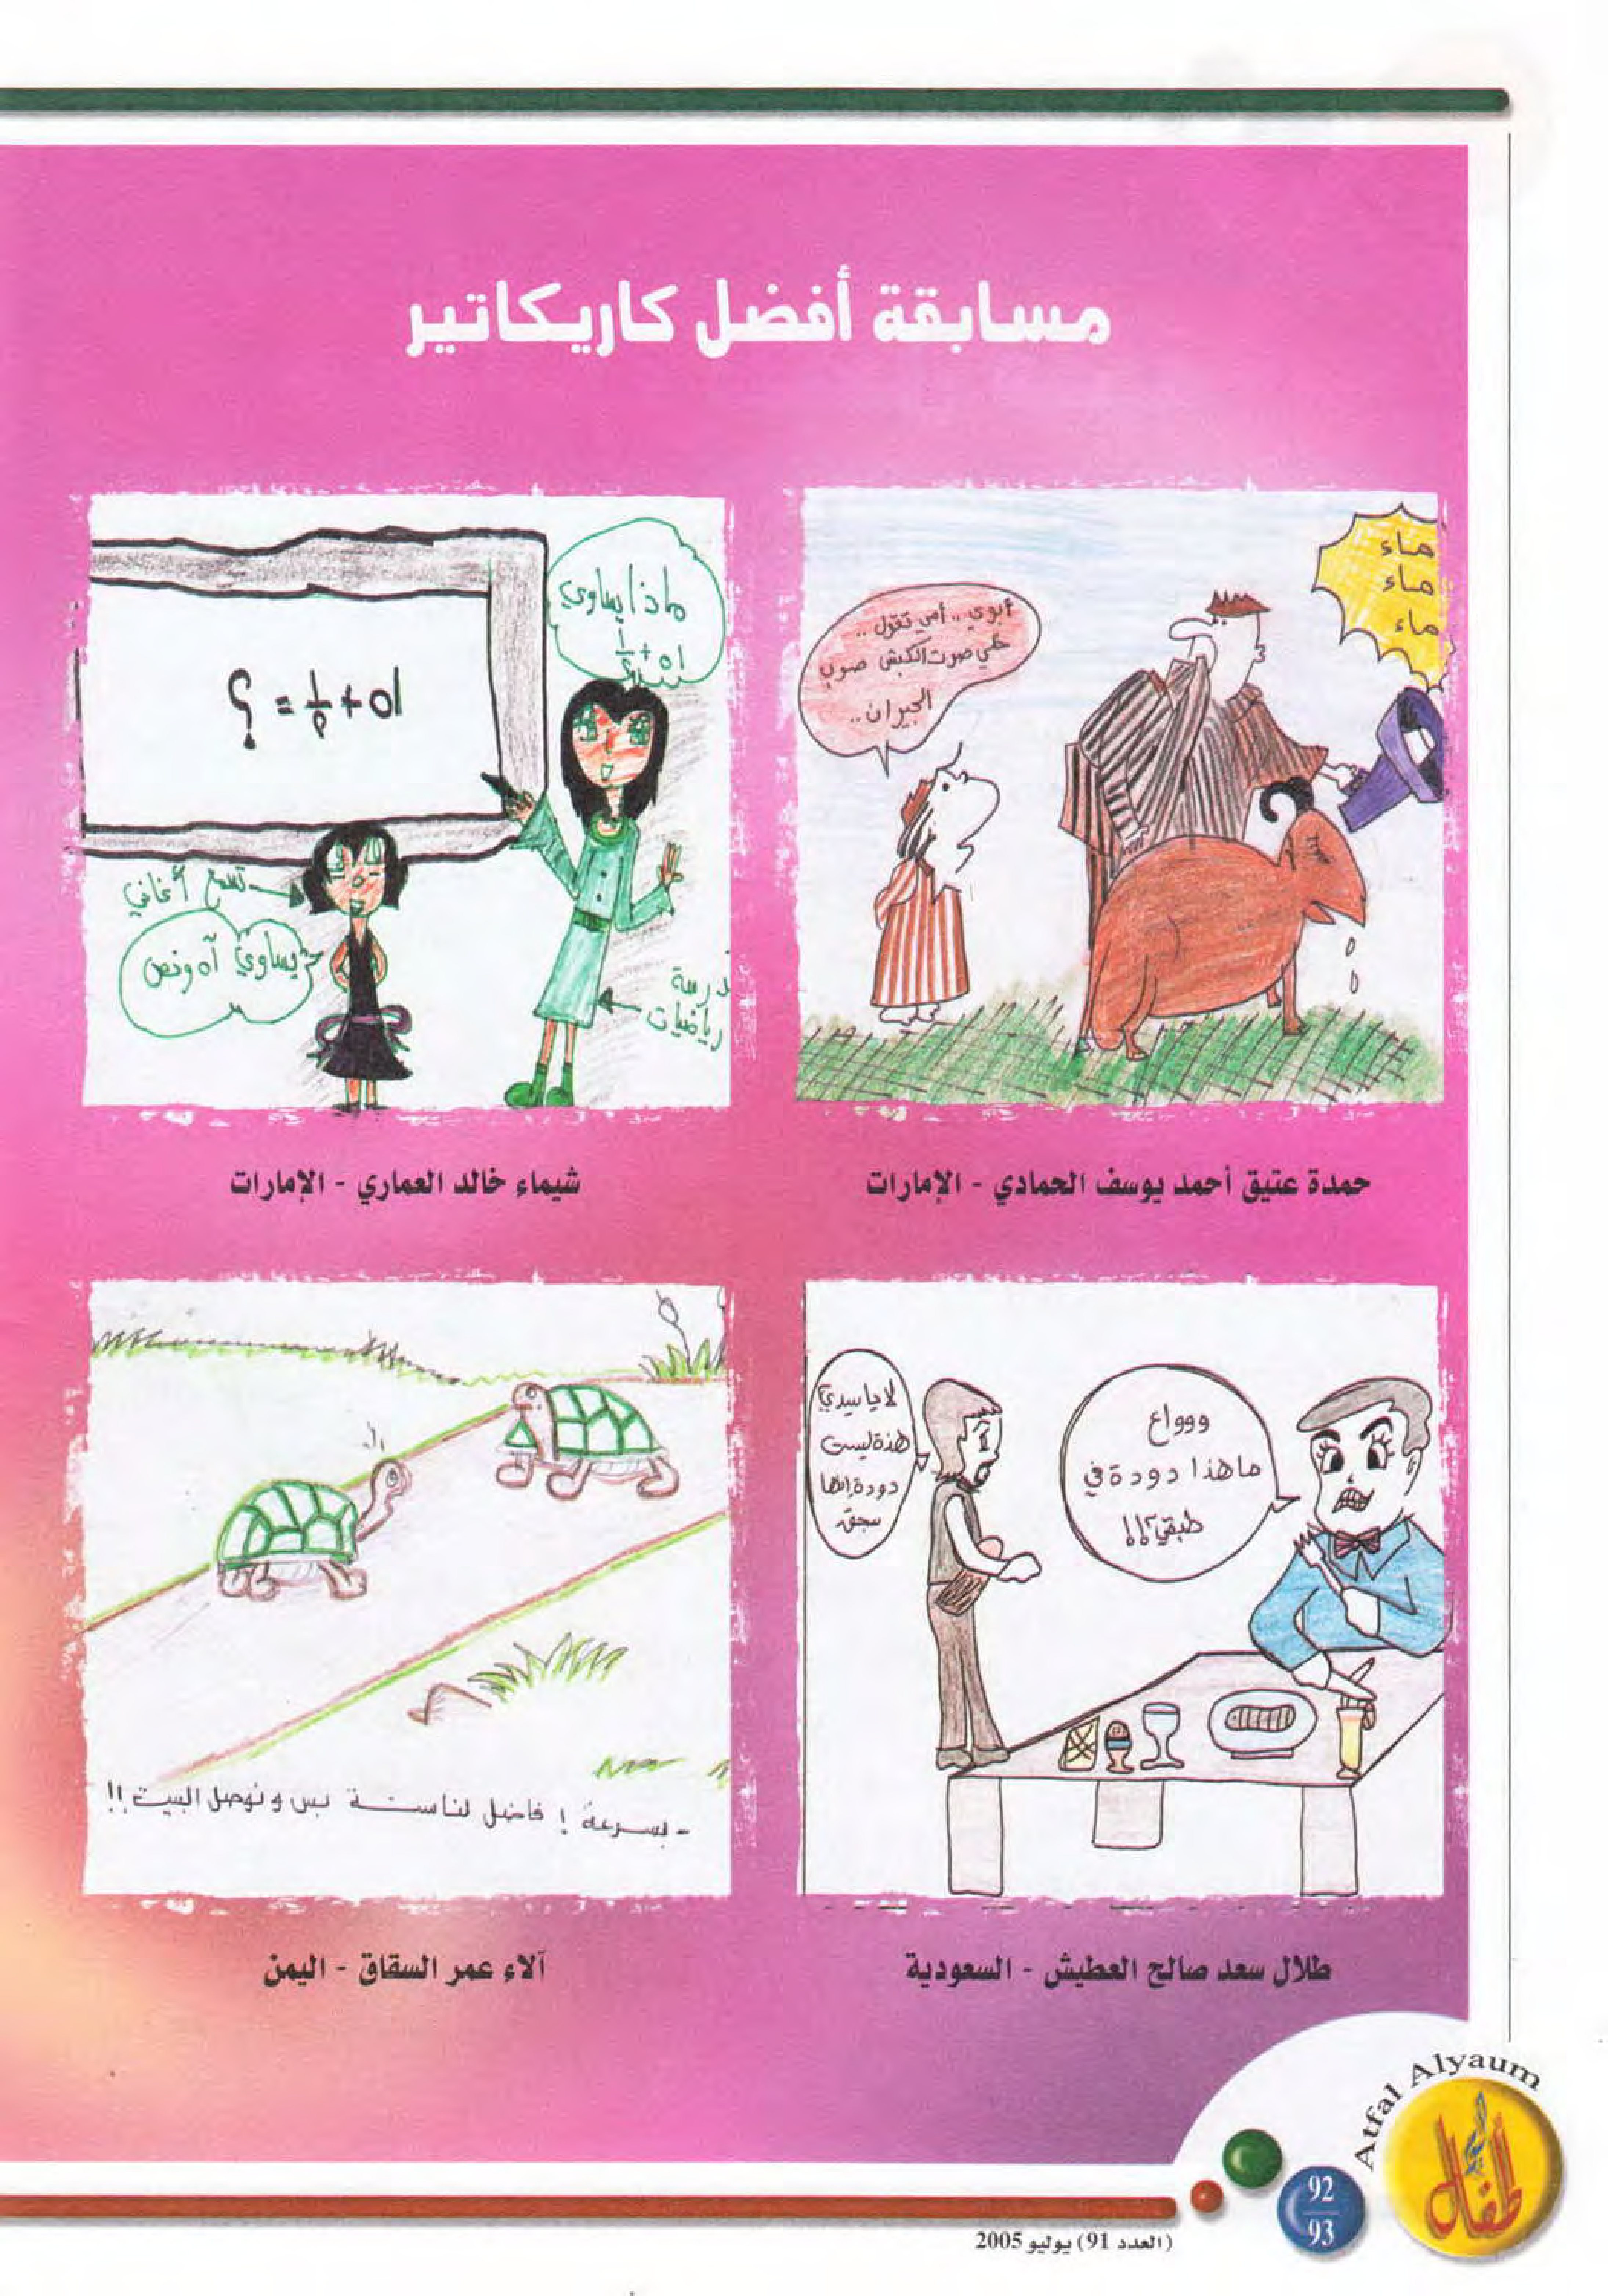 مسابقة أفضل كاريكاتير
ماء
ماء
ماء
أبوي .. أمي تقول ..
خلي صوت الكبش صوب
الجيران ..
حمدة عتيق أحمد يوسف الحمادي - الإمارات
ماذا يساوي
تسمع أغاني
يساوي آه ونص
مدرسة
رياضيات
شيماء خالد العماري - الإمارات
وووواع
ما هذا دودة في
طبقي؟!!
لا يا سيدي
هذه ليست
دودة إنها
سجق
طلال سعد صالح العطيش - السعودية
- بسرعة ! فاضل لنا سنة بس ونوصل البيت !!
آلاء عمر السقاق - اليمن
Atfal Alyaum
أطفال اليوم
92
93
(العدد 91) يوليو 2005